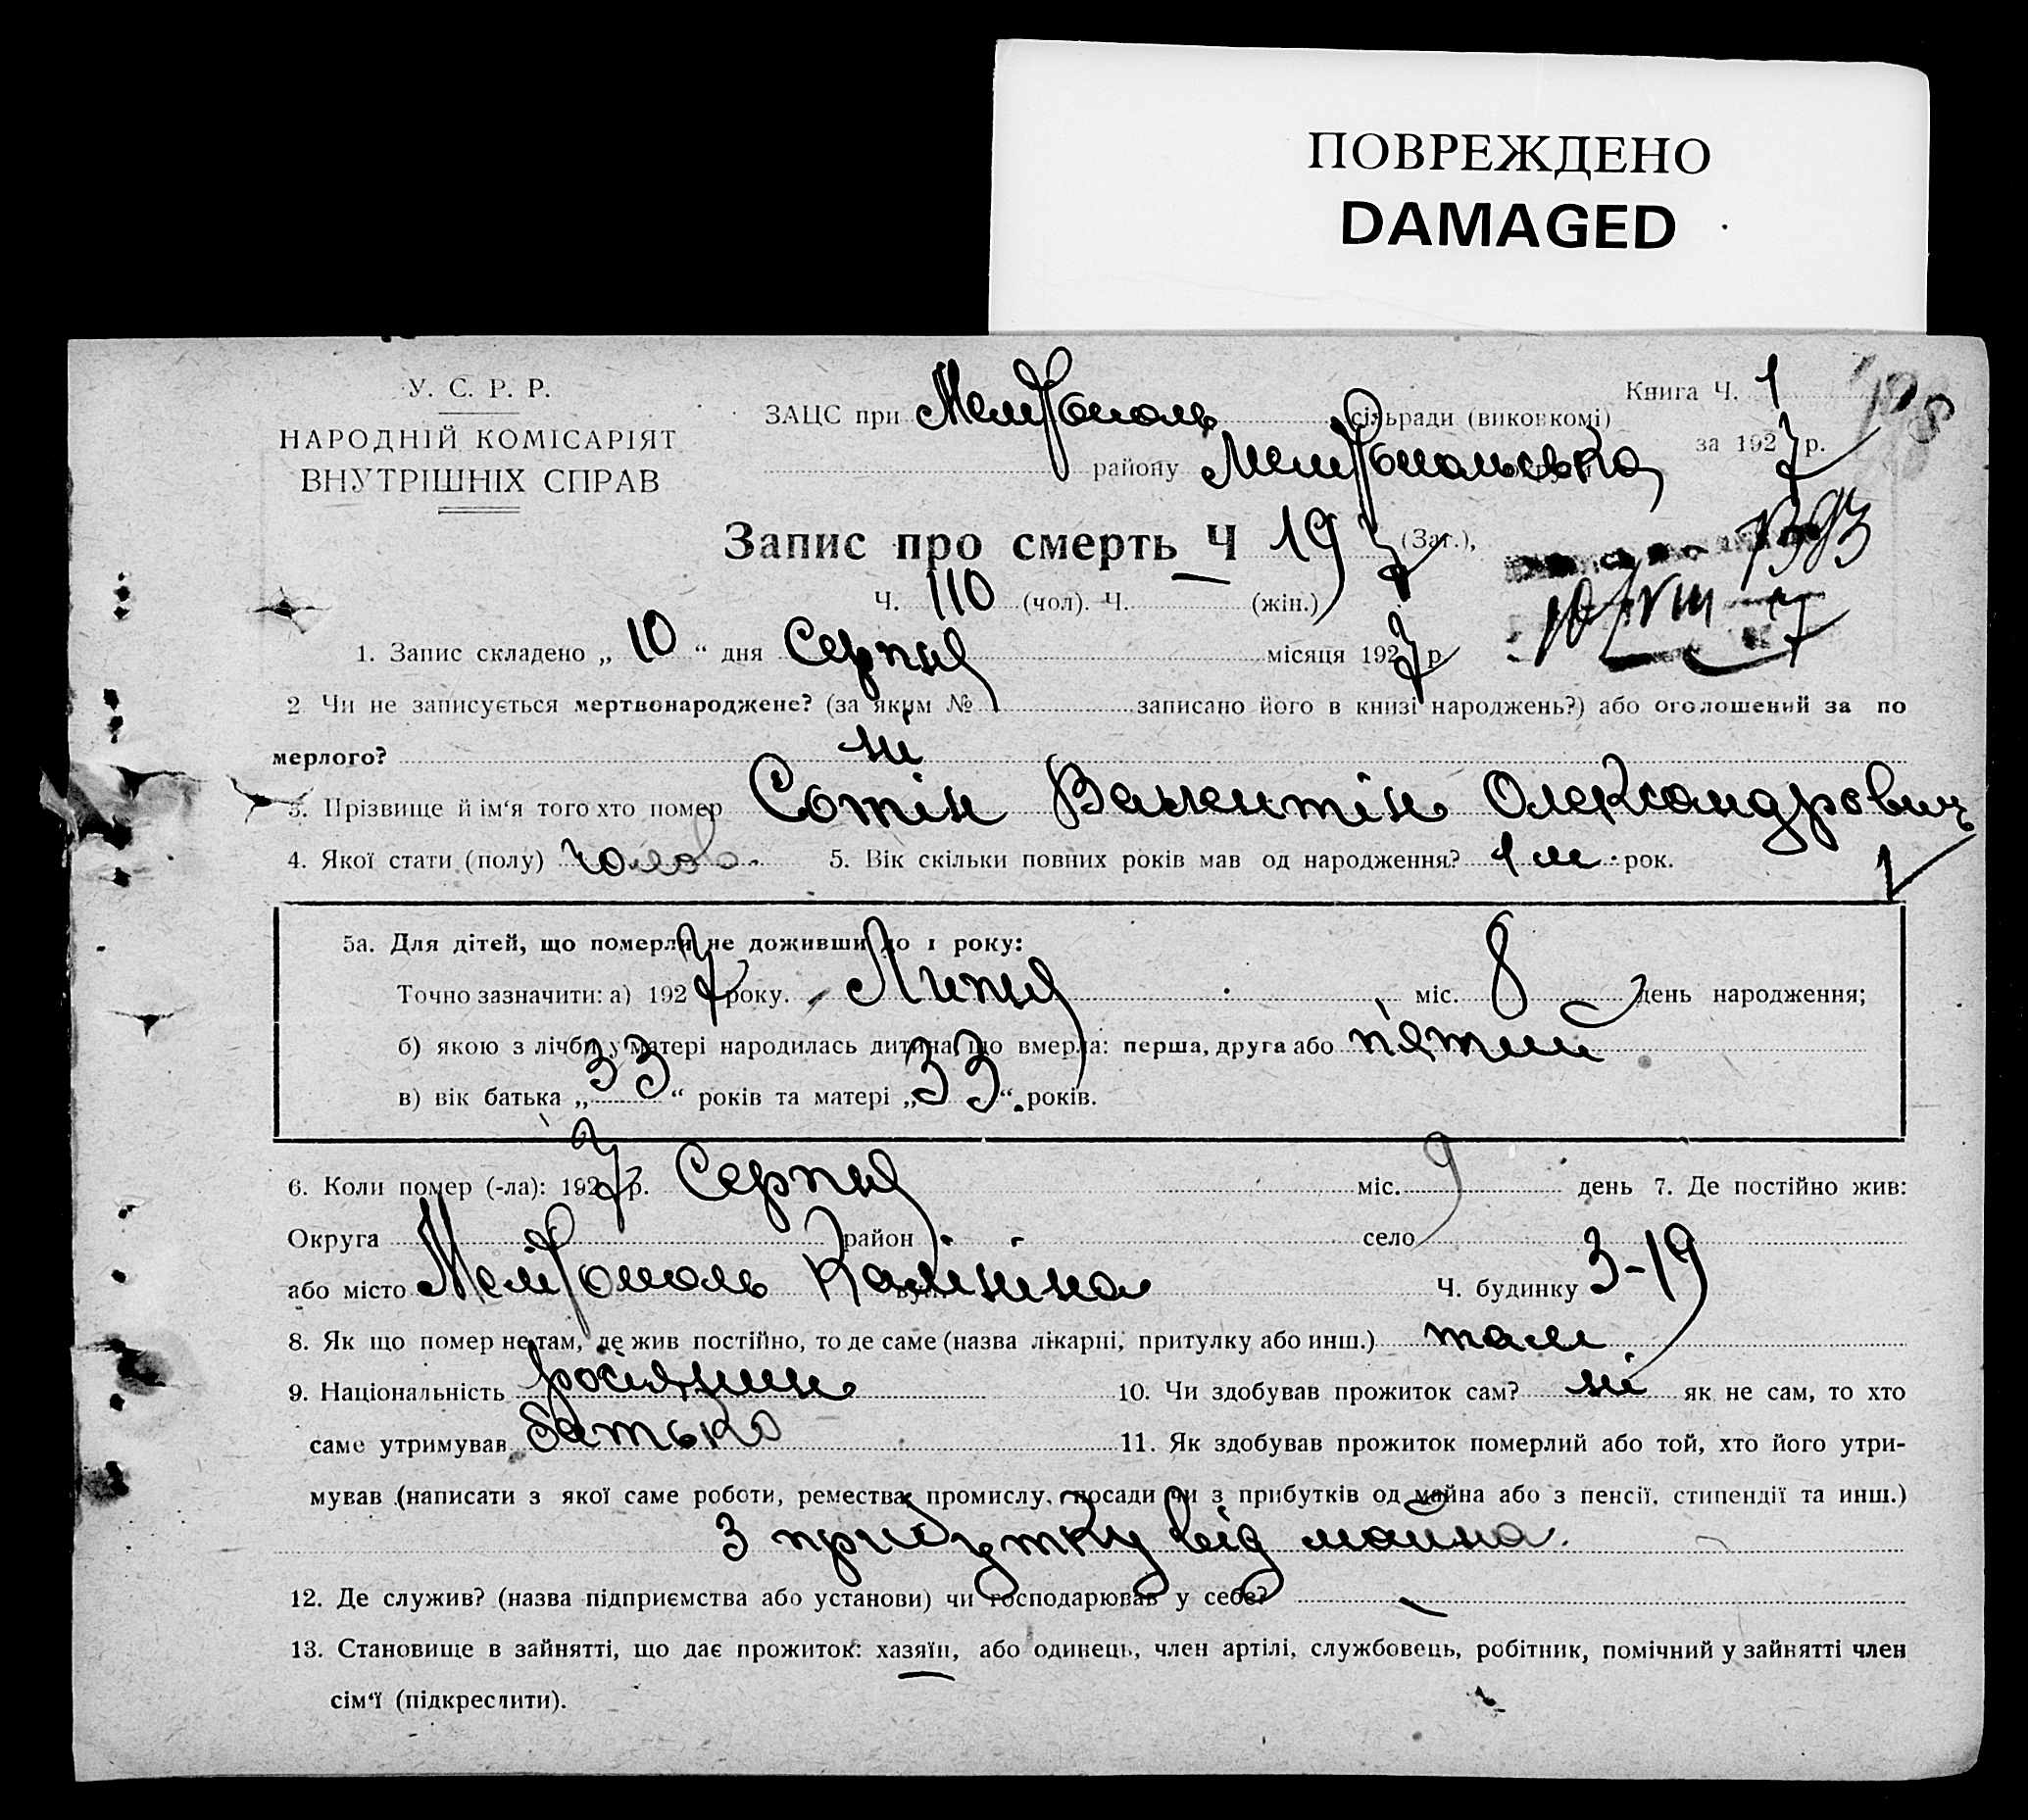 ПОВРЕЖДЕНО
DAMAGED
У. С. Р. Р.
НАРОДНІЙ КОМІСАРІЯТ
ВНУТРІШНІХ СПРАВ
ЗАЦС при Мелітополь сільради (виконкомі)
Книга Ч. 1
району Мелітопольська
за 1927 р.
Запис про смерть Ч 197 (Заг.),
Ч. 110 (чол). Ч. (жін.)
1. Запис складено „ 10 “ дня Серпня місяця 1927 р
2 Чи не записується мертвонароджене? (за яким № записано його в книзі народжень?) або оголошений за по
мерлого? ні
3. Прізвище й ім‘я того хто помер Сотін Валентін Олександрович
4. Якої стати (полу) чолов. 5. Вік скільки повних років мав од народження? 1 м. рок.
5а. Для дітей, що померли не доживши до 1 року:
Точно зазначити: а) 1927 року. Липня міс. 8 день народження;
б) якою з лічби у матері народилась дитина, що вмерла: перша, друга або п'ятий
в) вік батька „ 33 “ років та матері „ 33 “ років.
6. Коли помер (-ла): 1927 р. Серпня міс. 9 день 7. Де постійно жив:
Округа район село
або місто Мелітополь Калініна Ч. будинку 3-19
8. Як що помер не там, де жив постійно, то де саме (назва лікарні, притулку або инш.) там
9. Національність росіянин 10. Чи здобував прожиток сам? ні як не сам, то хто
саме утримував батько 11. Як здобував прожиток померлий або той, хто його утри-
мував (написати з якої саме роботи, ремества, промислу, посади чи з прибутків од майна або з пенсії, стипендії та инш.)
З прибутку від майна.
12. Де служив? (назва підприємства або установи) чи господарював у себе? —
13. Становище в зайнятті, що дає прожиток: хазяїн, або одинець, член артілі, службовець, робітник, помічний у зайнятті член
сім‘ї (підкреслити).